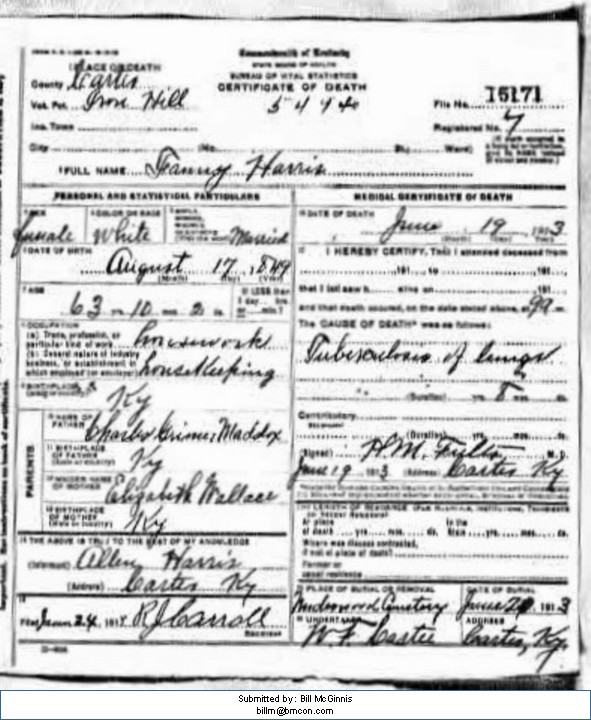 Commonwealth of Kentucky
STATE BOARD OF HEALTH
BUREAU OF VITAL STATISTICS
CERTIFICATE OF DEATH
1 PLACE OF DEATH
County Carter
Vot. Pct. Iron Hill
5494
File No. 15171
Inc. Town
Registered No. 7
City (No. St., Ward)
2 FULL NAME Fanny Harris
PERSONAL AND STATISTICAL PARTICULARS
SEX female
COLOR OR RACE White
Married
DATE OF BIRTH
August 17, 1849
(Month) (Day) (Year)
AGE
63 yrs. 10 mos. 2 ds.
If LESS than 1 day hrs. or min.?
OCCUPATION
(a) Trade, profession, or particular kind of work housework
(b) General nature of industry business, or establishment in which employed (or employer) housekeeping
BIRTHPLACE
(State or country) Ky
PARENTS
NAME OF FATHER Charles Grimes Maddox
BIRTHPLACE OF FATHER (State or country) Ky
MAIDEN NAME OF MOTHER Elizabeth Wallace
BIRTHPLACE OF MOTHER (State or country) Ky
THE ABOVE IS TRUE TO THE BEST OF MY KNOWLEDGE
(Informant) Allen Harris
(Address) Carter Ky
Filed 24, 191 R J Carroll
MEDICAL CERTIFICATE OF DEATH
DATE OF DEATH
June 19, 1913
(Month) (Day) (Year)
I HEREBY CERTIFY, That I attended deceased from
, 191 , to , 191 ,
that I last saw h alive on , 191 ,
and that death occured, on the date stated above, m.
The CAUSE OF DEATH* was as follows:
Tuberculosis of lungs
(Duration) yrs. 8 mos. ds.
Contributory
(Duration) yrs. mos. ds.
(Signed) H.M. M. D.
June 19 1913 (Address) Carter Ky
LENGTH OF RESIDENCE (For Hospitals, Institutions, Transients or Recent Residents)
At place of death yrs. mos. ds. In the State yrs. mos. ds.
Where was disease contracted, if not at place of death?
Former or usual residence
PLACE OF BURIAL OR REMOVAL Underwood Cemetery
DATE OF BURIAL June 20, 1913
UNDERTAKER W. F. Castle
ADDRESS Carter, Ky.
Submitted by: Bill McGinnis
billm@bmcon.com